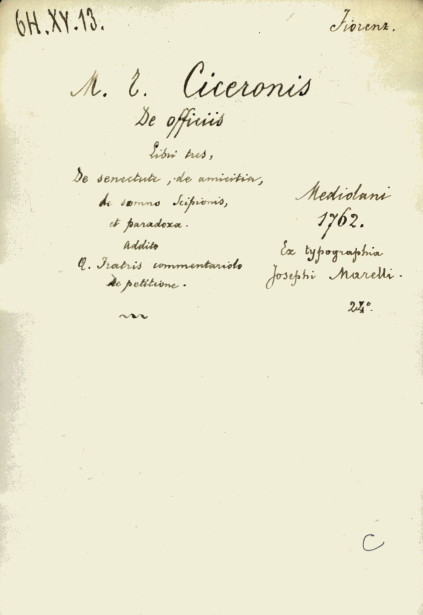 6H.XV.13.
Fiorenz.
M. T. Ciceronis
De officiis
Libri tres,
De senectute, de amicitia,
de somno Scipionis,
et paradoxa.
Addito
Q. Fratris commentariolo
de petitione.
Mediolani
1762.
Ex typographia
Josephi Marelli.
24°.
C